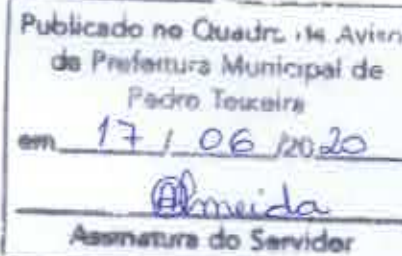 Publicado no Quadro de Aviso
da Prefeitura Municipal de
Pedro Teixeira
em 17 / 06 /2020
Almeida
Assinatura do Servidor